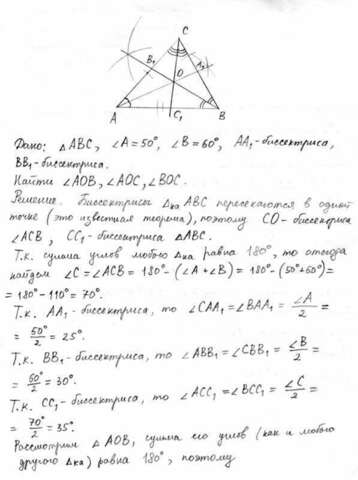 C
B₁
A₁
O
A
C₁
B
Дано: △ABC, ∠A=50°, ∠B=60°, AA₁-биссектриса,
BB₁-биссектриса.
Найти ∠AOB, ∠AOC, ∠BOC.
Решение. Биссектрисы △ка ABC пересекаются в одной
точке (это известная теорема), поэтому CO-биссектриса
∠ACB, CC₁-биссектриса △ABC.
Т.к. сумма углов любого △ка равна 180°, то отсюда
найдем ∠C=∠ACB=180°-(∠A+∠B)=180°-(50°+60°)=
=180°-110°=70°.
Т.к. AA₁-биссектриса, то ∠CAA₁=∠BAA₁=∠A/2=
=50°/2=25°.
Т.к. BB₁-биссектриса, то ∠ABB₁=∠CBB₁=∠B/2=
=60°/2=30°.
Т.к. CC₁-биссектриса, то ∠ACC₁=∠BCC₁=∠C/2=
=70°/2=35°.
Рассмотрим △AOB, сумма его углов (как и любого
другого △ка) равна 180°, поэтому